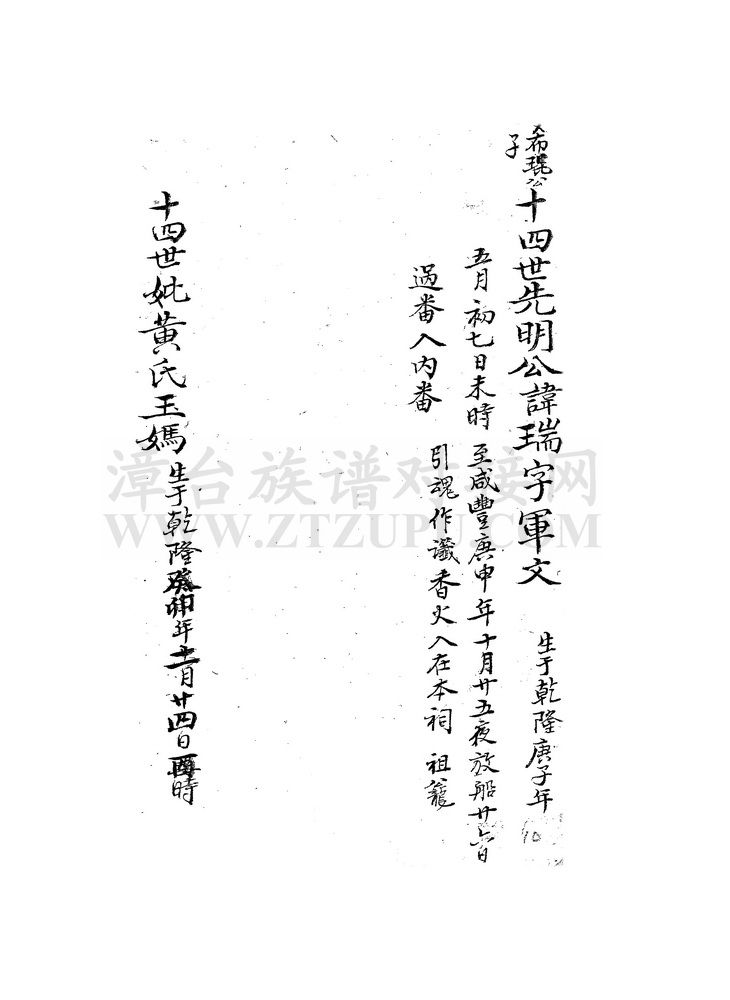 希琨公子
十四世先明公諱瑞字軍文 生于乾隆庚子年
五月初七日未時 至咸豐庚申年十月廿五夜放船廿六日
過番入內番 引魂作讖香火入在本祠祖龕
十四世妣黄氏玉媽 生于乾隆癸卯年十一月廿四日酉時
10
漳台族谱对接网
WWW.ZTZUPU.COM